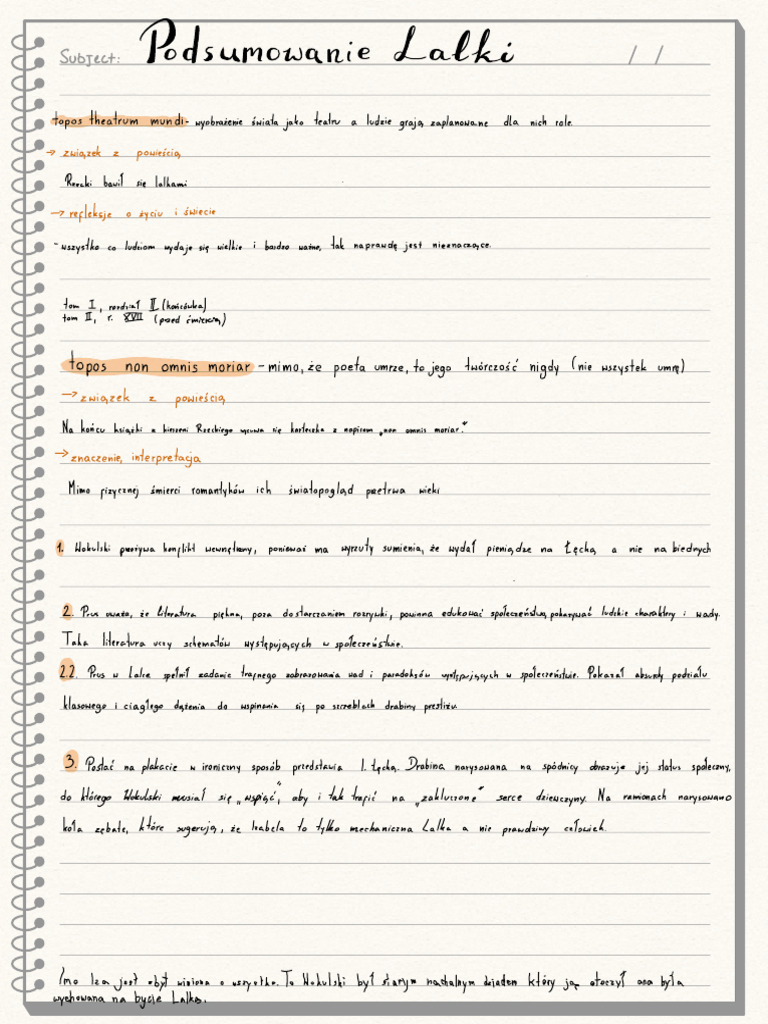 Subject: Podsumowanie Lalki / /
topos theatrum mundi - wyobrażenie świata jako teatru a ludzie grają zaplanowane dla nich role.
→ związek z powieścią
Rzecki bawił się lalkami
→ refleksje o życiu i świecie
- wszystko co ludziom wydaje się wielkie i bardzo ważne, tak naprawdę jest nieznaczące.
tom I, rozdział II (końcówka)
tom II, r. XVII (przed śmiercią)
topos non omnis moriar - mimo, że poeta umrze, to jego twórczość nigdy (nie wszystek umrę)
→ związek z powieścią
Na końcu książki z kieszeni Rzeckiego wysuwa się karteczka z napisem „non omnis moriar."
→ znaczenie, interpretacja
Mimo fizycznej śmierci romantyków ich światopogląd przetrwa wieki
1. Wokulski przeżywa konflikt wewnętrzny, ponieważ ma wyrzuty sumienia, że wydał pieniądze na Łęcką a nie na biednych
2. Prus uważa, że literatura piękna, poza dostarczaniem rozrywki, powinna edukować społeczeństwo, pokazywać ludzkie charaktery i wady.
Taka literatura uczy schematów występujących w społeczeństwie.
2.2. Prus w Lalce spełnił zadanie trafnego zobrazowania wad i paradoksów występujących w społeczeństwie. Pokazał absurdy podziału
klasowego i ciągłego dążenia do wspinania się po szczeblach drabiny prestiżu.
3. Postać na plakacie w ironiczny sposób przedstawia I. Łęcką. Drabina narysowana na spódnicy obrazuje jej status społeczny,
do którego Wokulski musiał się „wspiąć", aby i tak trafić na „zakluczone" serce dziewczyny. Na ramionach narysowano
koła zębate, które sugerują, że Izabela to tylko mechaniczna Lalka a nie prawdziwy człowiek.
Imo Iza jest zbyt winiona o wszystko. To Wokulski był starym nachalnym dziadem który ją otoczył ona była
wychowana na bycie Lalką.